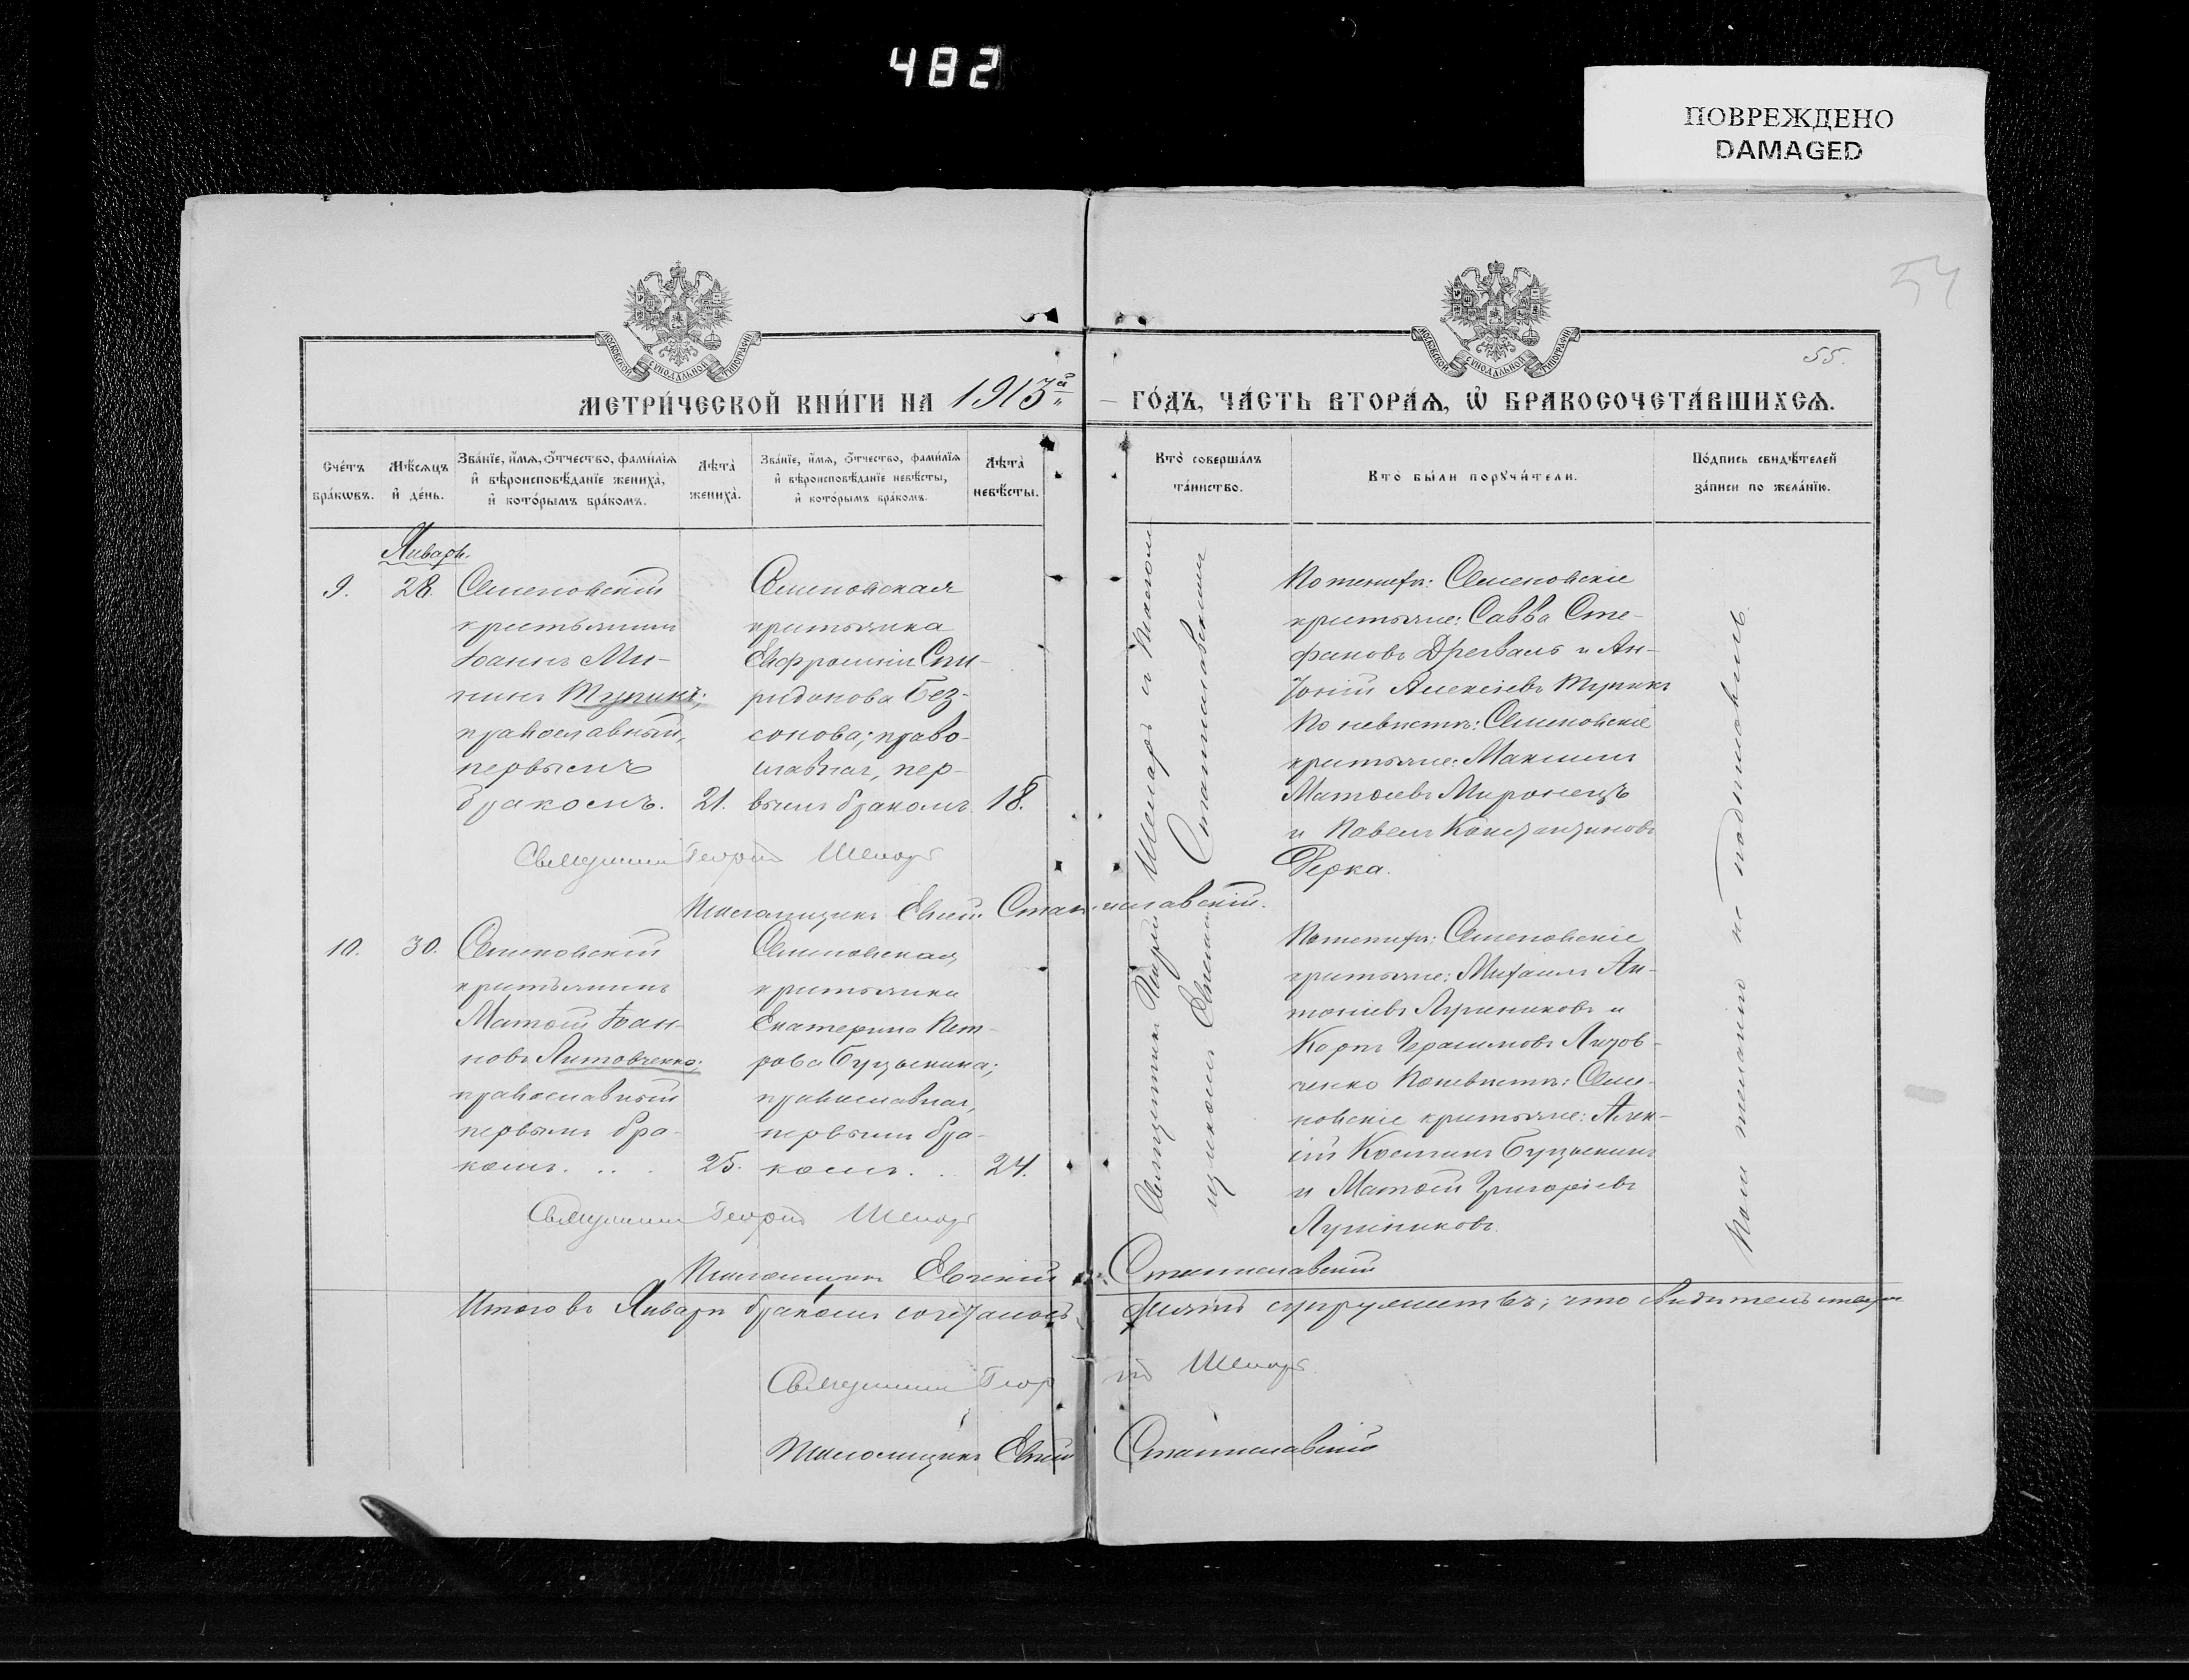 482
ПОВРЕЖДЕНО
DAMAGED
54
55.
МОСКОВСКОЙ СѴНОДАЛЬНОЙ ТИПОГРАФІИ
МОСКОВСКОЙ СѴНОДАЛЬНОЙ ТИПОГРАФІИ
МЕТРИ́ЧЕСКОЙ КНИ́ГИ НА 1913й
ГО́ДЪ, ЧА́СТЬ ВТОРА́Ѧ, Ѽ БРАКОСОЧЕТА́ВШИХСѦ.
Сче́тъ бра́кѡвъ.
Мѣ́сѧцъ и҆ де́нь.
Зва́нїе, и҆́мѧ, ѻ҆́тчество, фами́лїѧ
и҆ вѣроисповѣ́данїе жениха̀,
и҆ кото́рымъ бра́комъ.
Лѣта̀ жениха̀.
Зва́нїе, и҆́мѧ, ѻ҆́тчество, фами́лїѧ
и҆ вѣроисповѣ́данїе невѣ́сты,
и҆ кото́рымъ бра́комъ.
Лѣта̀ невѣ́сты.
Кто̀ соверша́лъ
та́инство.
Кто̀ бы́ли порꙋчи́тели.
По́дпись свидѣ́телей
за́писи по жела́нїю.
Январь.
9.
28.
Семеновскій
крестьянинъ
Іоаннъ Ми-
нинъ Тупикъ;
православный,
первымъ
бракомъ.
21.
Семеновская
крестьянка
Евфросинія Спи-
ридонова Без-
сонова; право-
славная, пер-
вымъ бракомъ.
18.
Священникъ Георгій Шепаръ и Псалом
щикомъ Евгеніемъ Станиславскимъ
По женихѣ: Семеновскіе
крестьяне: Савва Сте-
фановъ Дрегваль и Ан-
тоній Алексіевъ Тупикъ
По невѣстѣ: Семеновскіе
крестьяне: Максимъ
Матѳіевъ Миронецъ
и Павелъ Константиновъ
Рерка.
Священникъ Георгій
Псаломщикъ Евгеній Станиславскій.
10.
30.
Семеновскій
крестьянинъ
Матѳій Іоан-
новъ Литовченко;
православный
первымъ бра-
комъ. . . .
25.
Семеновская
крестьянка
Екатерина Пет-
рова Буцыкина;
православная,
первымъ бра-
комъ. . .
24.
По женихѣ: Семеновскіе
крестьяне: Михаилъ Ан-
тоніевъ Лушниковъ и
Карпъ Герасимовъ Литов-
ченко По невѣстѣ: Семе-
новскіе крестьяне: Алек-
сій Косминъ Буцыкинъ
и Матѳій Григоріевъ
Лушниковъ.
не подписовались
Священникъ Георгій
Псаломщикъ Евгеній Станиславскій
Итого въ Январѣ бракомъ сочеталось десять супружествъ; что свидѣтельствуемъ
Священникъ Георгій
Псаломщикъ Евгеній Станиславскій